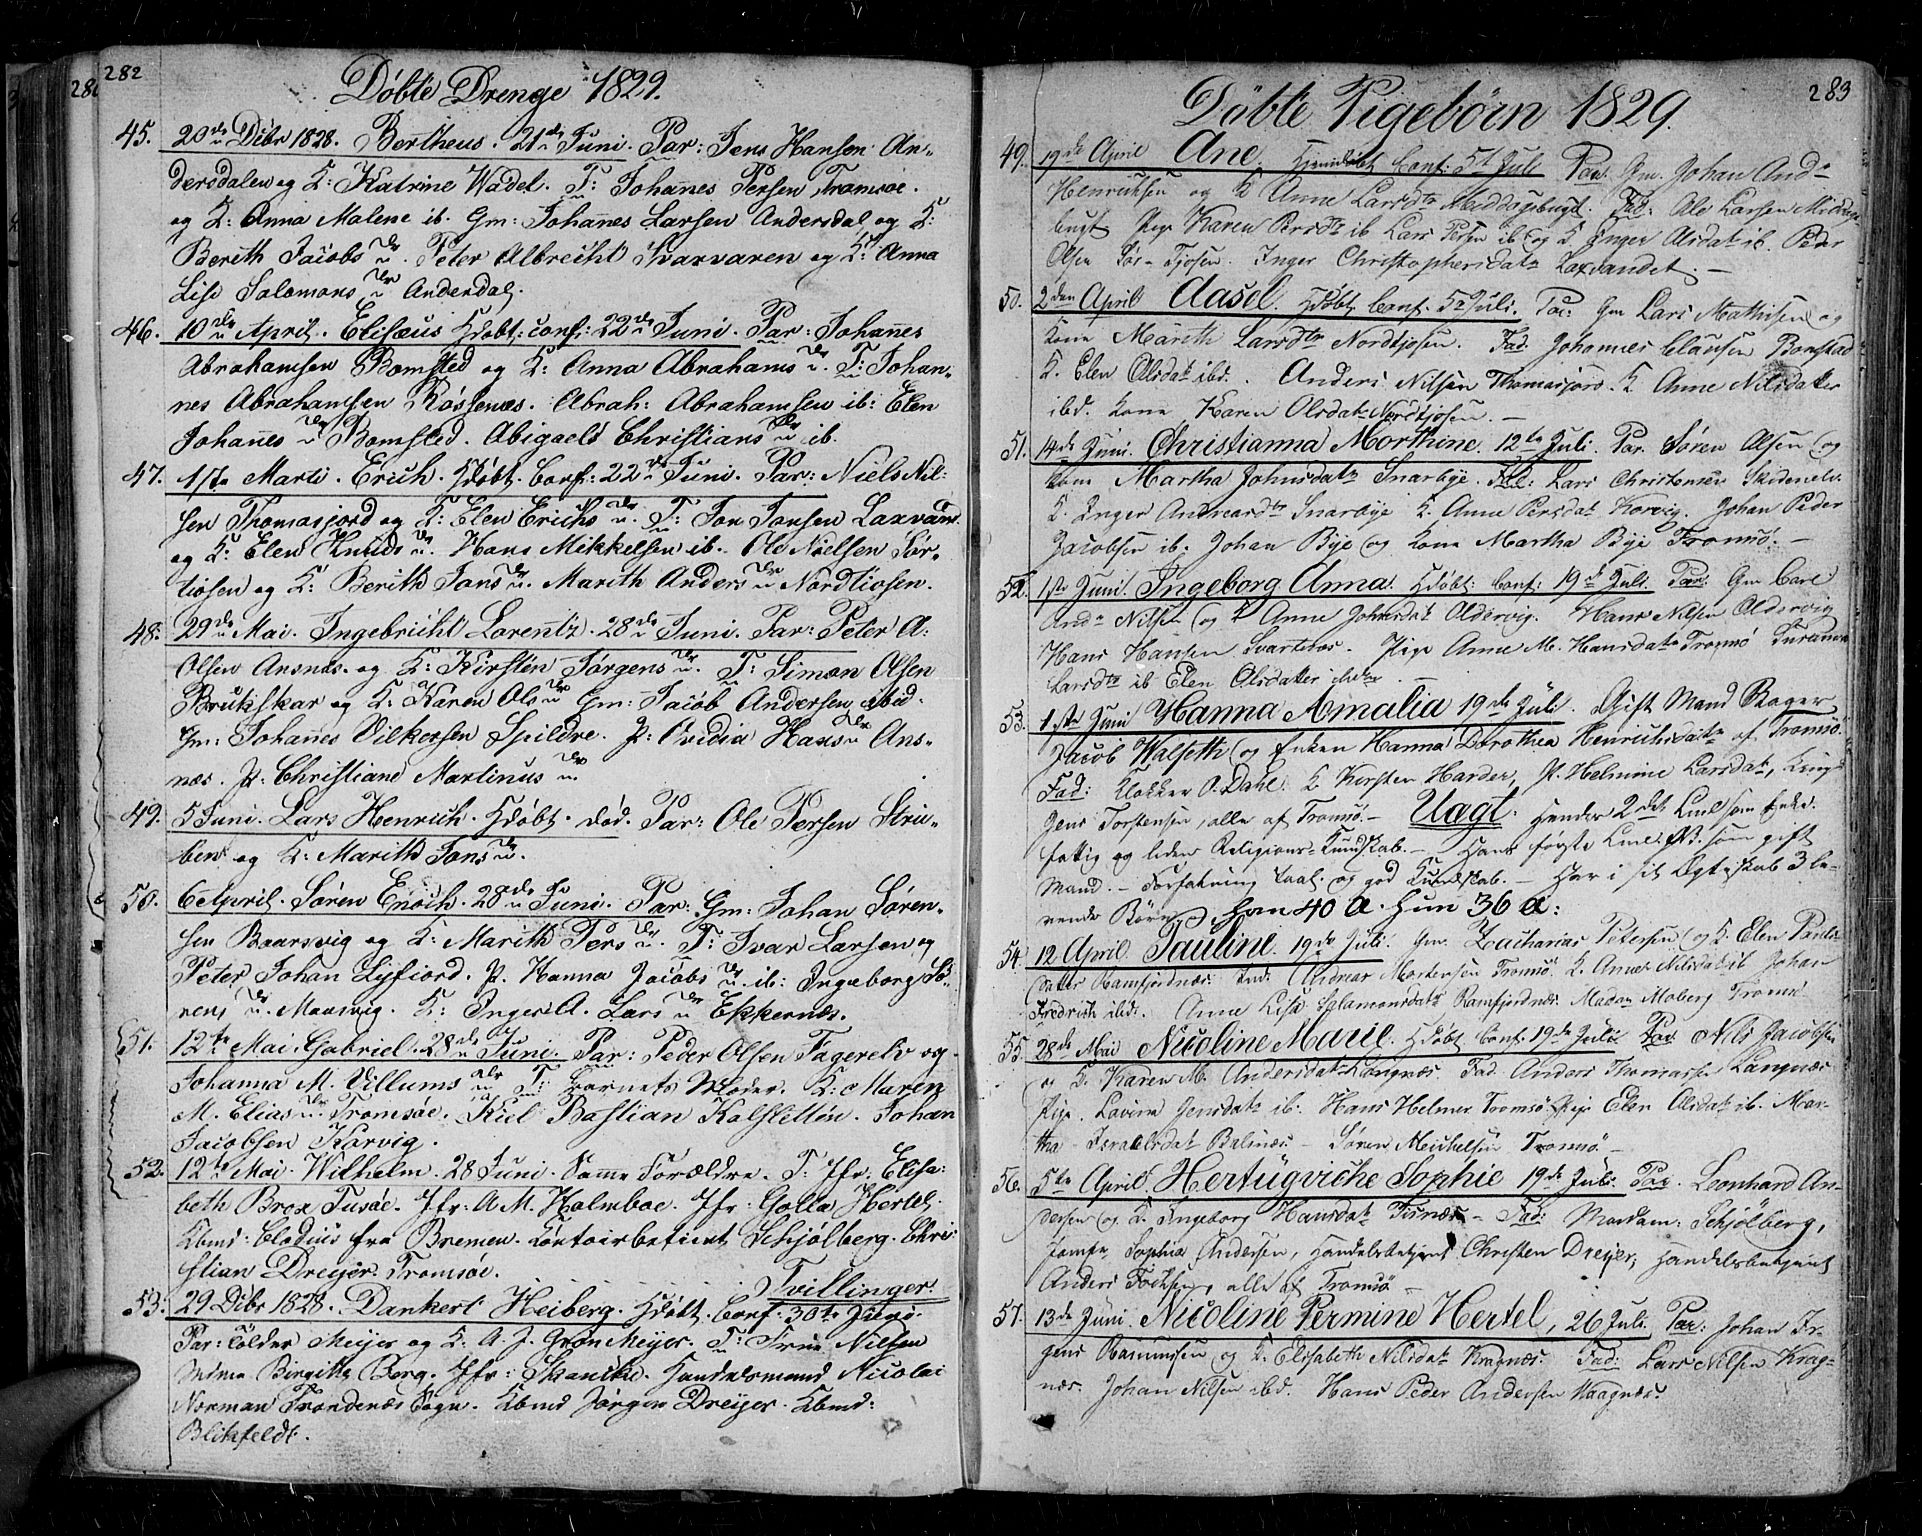 282
Døbte Drenge 1829.
45. 20de Dcbr 1828. Bertheus. 21de Juni. Par: Jens Hansen An-
dersdalen og K: Katrine Wadel. F: Johannes Persen Tromsøe.
og K: Anna Malene ib. Gm: Johannes Larsen Andersdal og K:
Berith Jacobsdr. Peter Albrecht Kvarvaren og K: Anna
Lise Salomonsdr Anderdal.
46. 10de April. Elisæus Hdøbt: conf: 22de Juni. Par: Johanes
Abrahamsen Bomsted og K: Anna Abrahamsdr. F: Johan-
nes Abrahamsen Røssenes. Abrah: Abrahamsen ib: Elen
Johannesdr Bomsted. Abigaels Christiansdr ib.
47. 1ste Marti. Erich. Hdøbt. Conf: 22de Juni. Par: Niels Nil-
sen Thomasjord og K: Elen Erichsdr. F: Jon Jonsen Laxvatn
og K: Elen Knudsdr. Hans Mikkelsen ib. Ole Nielsen Sør-
tiosen og K: Berith Jonsdr. Marith Andersdr Nordtiosen.
48. 29de Mai. Ingebricht Lorentz. 28de Juni. Par: Peter A.
Olsen Ansnes. og K: Kirsten Jørgensdr. F: Simon Olsen
Brukskar og K: Karen Olsdr Gm: Jacob Andersen ibid.
Gm: Johannes Vilkersen Spildre. P: Ovidia Hansdr Ans-
næs. P: Christiane Martinusdr
49. 5 Juni. Lars Henrich. Hdøbt. død. Par: Ole Persen Stru-
ben og K: Marith Jonsdr.
50. 6 April. Søren Enoch. 28de Juni. Par: Gm: Johan Søren-
sen Baarsvig og K: Marith Persdr. F: Ivar Larsen og
Peter Johan Lyfiord. P. Hanna Jacobsdr. ib: Ingeborg Sø-
rensdr. Maasvig. K: Inger A. Larsdr Ekkernæs.
51. 12te Mai. Gabriel. 28de Juni. Par: Peder Olsen Fagerelv og
Johanna M. Villumsdr F: Barnets Moder. K: Maren
M. Eliasdr. Tromsøe. Kiel Bastian Kalsletten. Johan
Jacobsen Korvig.
52. 12te Mai. Wilhelm. 28 Juni. Samme Forældre. F: Jfr: Elisa-
beth Brox Tusøe. Jfr: A M. Holmboe. Jfr: Golla Hertel.
Kbmd: Cladius fra Bremen. Contoirbetient Schjølberg. Chri-
stian Dreyer. Tromsøe.
Tvillinger
53. 29 Dcbr 1828. Dankert Heiberg. Hdøbt. Conf. 30te Juni.
Par: Tolder Meijer og K. A. J. Grøn Meijer. F: Frue Nilsen
Birgitte Berg. Jfr: Skanche. Handelsmand Nicolai
Norman Trondenæs Sogn. Kbmd Jørgen Dreyer. Kbmd:
Blikfeldt.
283
Døbte Pigebørn 1829.
49. 19de April Ane. Hjemdøbt Conf: 5t Juli Par. Gm. Johan Andr
Henrichsen og K Anne Larsdtr Meddagsbugt. Fad: Ole Larsen Middags-
bugt Pige Karen Persdtr ib Lars Persen ib og K. Inger Olsdat ib. Peder
Olsen Sør-Tjosen. Inger Christophersdatr Laxvandet. —
50. 2den April Aasel. Hdøbt Conf. 5te Juli. Par: Gm Lars Mathisen og
Kone Mareth Larsdtr Nordtjosen. Fad. Johannes Clausen Bomstad
K. Elen Olsdatr ibd. Anders Nilsen Thomasjord. K Anne Nilsdatter
ibd. Kone Karen Olsdatr Nordtjosen. —
51. 14de Juni. Christianna Morthine. 12te Juli. Par. Søren Olsen og
Kone Martha Johnsdatr Snarbye. Fad: Lars Christensen Skidenelv.
K. Inger Andreasdtr Snarbye K. Anne Persdat Korvig. Johan Peder
Jacobsen ib. Johan Bye og Kone Martha Bye Tromsø. —
52. 1ste Juni. Ingeborg Anna. Hdøbt: Conf: 19de Juli. Par: Gm Carl
Andr Nilsen og K Anne Johnsdat Oldervig. Hans Nilsen Oldervig
Hans Hansen Svartebær. Pige Anne M. Hansdatr Tromsø Suranna
Larsdtr ib Elen Olsdatter —
53. 1ste Juni Hanna Amalia 19de Juli. Gift Mand Bager
Jacob Walseth og Enken Hanna Dorothea Henrichsdatr af Tromsø.
Fad: Klokker O. Dahl. K Kirsten Harder, P. Helmine Larsdat,
Jens Torstensen, alle af Tromsø. — Uægt. Hendes 2det Leiel som Enke.
fattig og liden Religions-Kundskab. — Hans første Leiel. som gift
Mand. — Forfatning taal. og god Kundskab. — Har i sit Ægteskab 3 le-
vende Børn. Han 40 A. Hun 36 A:
54. 12 April Pauline. 19de Juli. Gm. Zacharias Petersen og K. Elen Pauls-
datter Ramfjordnæs. Fad: Mortensen Tromsø. K. Anne Nilsdat ib Johan
Fredrich ibd. Anne Lisa Salamonsdatr Ramfjordnæs. Madam Moberg Tromsø
55. 28de Mai Nicoline Marie. Hdøbt Conf. 19de Juli. Par Nils Jacobsen
og K. Karen M. Andersdatr Langnæs Fad. Anders Thomassen Langnæs
Pige Lavina Jensdatr ib. Hans Helmer Tromsø Pige Elen Olsdat ib. Mar-
tha Israelsdat Balnæs — Søren Meichelsen Tromsø —
56. 5te April. Hertügviche Sophie 19de Juli. Par. Leonhard An-
dersen og K. Ingeborg Hansdatr Tisnæs — Fad: Madam: Schjölberg,
Jomfr. Sophia Andersen, Handelsbetjent Christen Dreyer, Handelsbetjent
Anders Fochsen, alle af Tromsø —
57. 13de Juni. Nicoline Permine Hertel, 26 Juli. Par: Johan Jr-
gens Rasmussen og K. Elisabeth Nilsdatr Kragnæs. Fad: Lars Nilsen Krag-
næs. Johan Nilsen ibd. Hans Peder Andersen Kragnæs.